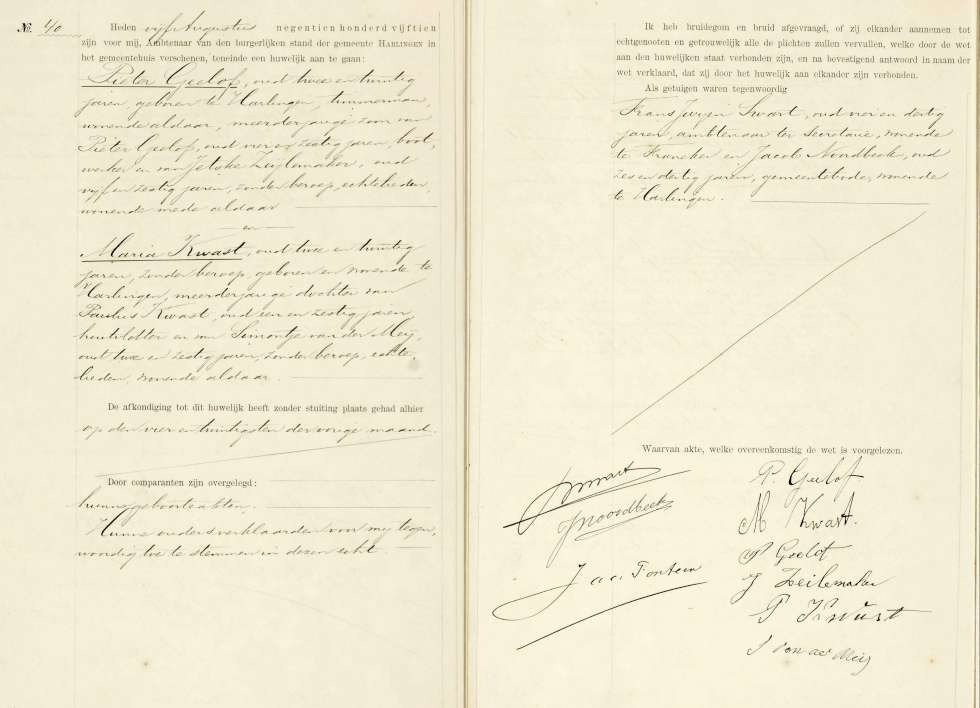 No. 40 Heden vijf Augustus negentien honderd vijftien
zijn voor mij, Ambtenaar van den burgerlijken stand der gemeente HARLINGEN in
het gemeentehuis verschenen, teneinde een huwelijk aan te gaan:
Pieter Geelof, oud twee en twintig
jaren, geboren te Harlingen, timmerman,
wonende aldaar, meerderjarige zoon van
Pieter Geelof, oud vier en zestig jaren, boot,
werker en van Jetske Zeijlemaker, oud
vijf en zestig jaren, zonder beroep, echtelieden,
wonende mede aldaar
en
Maria Kwast, oud twee en twintig
jaren, zonder beroep, geboren en wonende te
Harlingen, meerderjarige dochter van
Paulus Kwast, oud een en zestig jaren,
houtvlotter en van Simontje van der Meij,
oud twee en zestig jaren, zonder beroep, echte,
lieden, wonende aldaar.
De afkondiging tot dit huwelijk heeft zonder stuiting plaats gehad alhier
op den vier en twintigsten der vorige maand.
Door comparanten zijn overgelegd:
hunne geboorteakten.
Hunne ouders verklaarden voor mij tegen,
woordig toe te stemmen in dezen echt.
Ik heb bruidegom en bruid afgevraagd, of zij elkander aannemen tot
echtgenooten en getrouwelijk alle de plichten zullen vervullen, welke door de wet
aan den huwelijken staat verbonden zijn, en na bevestigend antwoord in naam der
wet verklaard, dat zij door het huwelijk aan elkander zijn verbonden.
Als getuigen waren tegenwoordig
Frans Swart, oud vier en dertig
jaren, ambtenaar ter Secretarie, wonende
te Franeker en Jacob Noordbeek, oud
zes en dertig jaren, gemeentebode, wonende
te Harlingen.
Waarvan akte, welke overeenkomstig de wet is voorgelezen.
P. Geelof
Swart
M Kwast.
JNoordbeek
P Geelof
J Zeilemaker
Fontein
P Kwast
S van der Meij